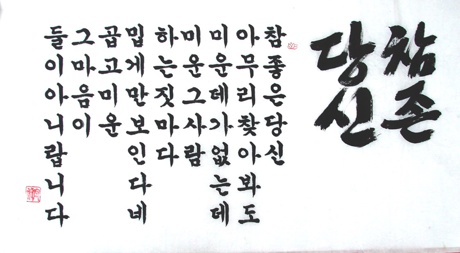 참존
당신
참좋은당신
아무리찾아봐도
미운데가없는데
미운그사람
하는짓마다
밉게만보인다네
곱고미운
그마음이
들이아니랍니다